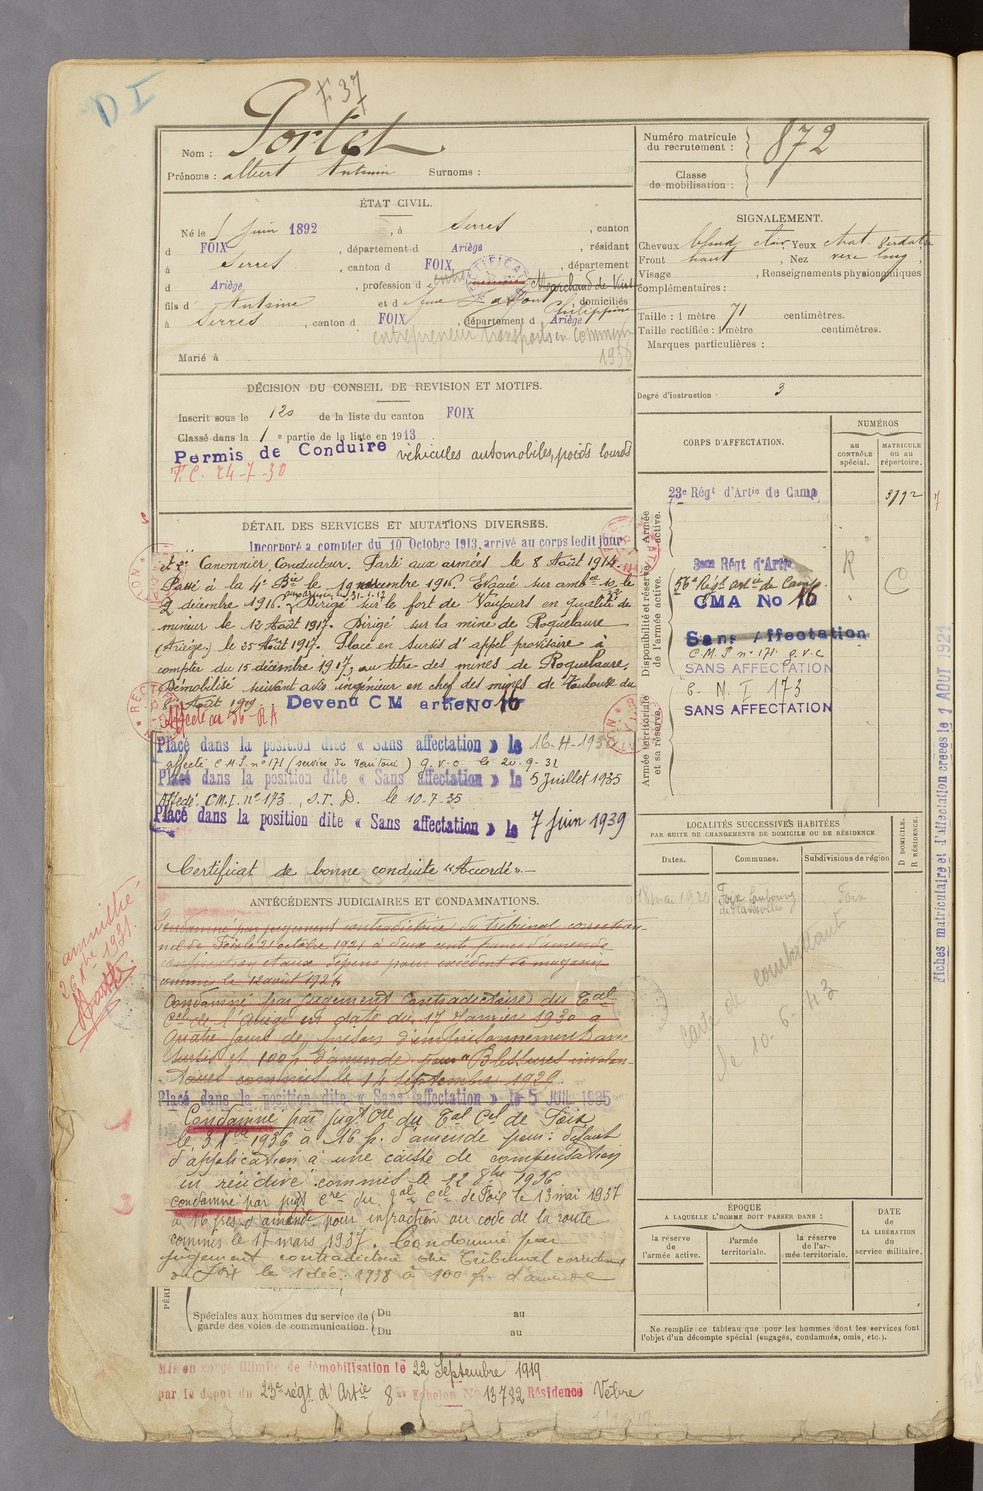 D I
F 37
Nom : Portet
Prénoms : albert Antonin Surnoms :
ÉTAT CIVIL.
Né le 5 juin 1892, à Serres, canton
d FOIX, département d Ariège, résidant
à Serres, canton d FOIX, département
d Ariège, profession d Marchand de Vins
fils d Antoine et d Lafont Philippine domiciliés
à Serres, canton d FOIX, département d Ariège
entrepreneur transports en commun
1938
Marié à
DÉCISION DU CONSEIL DE REVISION ET MOTIFS.
Inscrit sous le 120 de la liste du canton FOIX
Classé dans la 1e partie de la liste en 1913
Permis de Conduire véhicules automobiles, poids lourds
P.C. 24-7-30
DÉTAIL DES SERVICES ET MUTATIONS DIVERSES.
Incorporé a compter du 10 Octobre 1913, arrivé au corps ledit jour
et 2e Canonnier Conducteur. Parti aux armées le 8 Août 1914.
Passé à la 4e Bie le 19 novembre 1916. Evacué sur amb.
2 décembre 1916. Dirigé sur le fort de Vaujours en qualité de
mineur le 12 Août 1917. Dirigé sur la mine de Roquelaure
(Ariège) le 25 Août 1917. Placé en sursis d'appel provisoire à
compter du 15 décembre 1917, au titre des mines de Roquelaure.
Démobilisé suivant avis ingénieur en chef des mines de Toulouse du
Août 1919 Devenu CM artie No 16
Affecté au 56e R A
Placé dans la position dite « Sans affectation » le 16-4-1930
affecté C.M.I. n° 171 (service du Territoire) G.V.C. le 20-9-31
Placé dans la position dite « Sans affectation » le 5 Juillet 1935
Affecté C.M.I. n° 173, S.T.D. le 10-7-35
Placé dans la position dite « Sans affectation » le 7 juin 1939
Certificat de bonne conduite "Accordé".—
ANTÉCÉDENTS JUDICIAIRES ET CONDAMNATIONS.
amnistié
1931.
Condamné par jugement contradictoire du tribunal correction-
nel de Foix le 21 octobre 1921 à deux cent francs d'amende
confiscation et aux dépens pour excédent de magasin
commis le 12 août 1921
Condamné par jugement contradictoire du Tal
Cel de l'Ariège en date du 17 Janvier 1930 à
quatre jours de prison d'emprisonnement avec
sursis et 100 f. d'amende pour "Blessures involon-
taires commis le 14 septembre 1929.
Placé dans la position dite « Sans affectation » le 5 JUIL 1935
Condamné par jugt Cre du Tal Cel de Foix
le 31 Xbre 1936 à 16 f. d'amende pour : défaut
d'application à une caisse de compensation
en récidive commis le 12 8bre 1936
condamné par jugt Cre du Tal Cel de Foix le 13 mai 1937
à 16 frs d'amende pour infraction au code de la route
commis le 17 mars 1937. Condamné par
jugement contradictoire du Tribunal correctionnel
de Foix le 1 déc. 1938 à 100 f. d'amende
Spéciales aux hommes du service de garde des voies de communication. Du au
Du au
Mis en congé illimité de démobilisation le 22 Septembre 1919
par le dépôt du 23e régt d'Artie 8e Echelon No 13782 Résidence Vebre
Numéro matricule du recrutement : 872
Classe de mobilisation :
SIGNALEMENT.
Cheveux blond clair Yeux chat. verdâtre
Front haut, Nez vexe long
Visage, Renseignements physiognomiques
complémentaires :
Taille : 1 mètre 71 centimètres.
Taille rectifiée : 1 mètre centimètres.
Marques particulières :
Degré d'instruction : 3
CORPS D'AFFECTATION.
NUMÉROS
au CONTRÔLE spécial.
MATRICULE ou au répertoire.
Armée active.
23e Régt d'Artie de Camp 3792
Disponibilité et réserve de l'armée active.
56e Régt Art. de Camp. R C
CMA No 16
Sans Affectation
C.M.I. n° 171 G.V.C
SANS AFFECTATION
C. M. I 173
SANS AFFECTATION
Armée territoriale et sa réserve.
Fiches matriculaire et d'affectation créées le 1 AOUT 1921
LOCALITÉS SUCCESSIVES HABITÉES
PAR SUITE DE CHANGEMENTS DE DOMICILE OU DE RÉSIDENCE
D DOMICILE.
R RÉSIDENCE.
Dates. Communes. Subdivisions de région
18 mai 1920 Foix Faubourg Foix
carte de combattant
le 10-6-43
ÉPOQUE
A LAQUELLE L'HOMME DOIT PASSER DANS :
la réserve de l'armée active.
l'armée territoriale.
la réserve de l'armée territoriale.
DATE de LA LIBÉRATION du service militaire.
Ne remplir ce tableau que pour les hommes dont les services font
l'objet d'un décompte spécial (engagés, condamnés, omis, etc.).